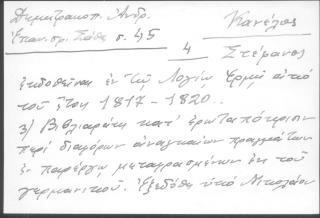 Δημητρακοπ. Ἀνδρ.
Ἐπαν. πρ. Σάθα σ. 45
Κανέλος
4 Στέφανος
ἐκδοθεῖσαι ἐν τῷ Λογίῳ Ἑρμῇ ἀπό
τοῦ ἔτου 1817 – 1820.
3) Βιβλιαράκι κατ' ἐρωταπόκρισιν
περί διαφόρων ἀναγκαίων πραγμάτων
ἐν παρέργῳ μεταφρασμένων ἐκ τοῦ
γερμανικοῦ. Ἐξεδόθη ὑπό Νικολάου